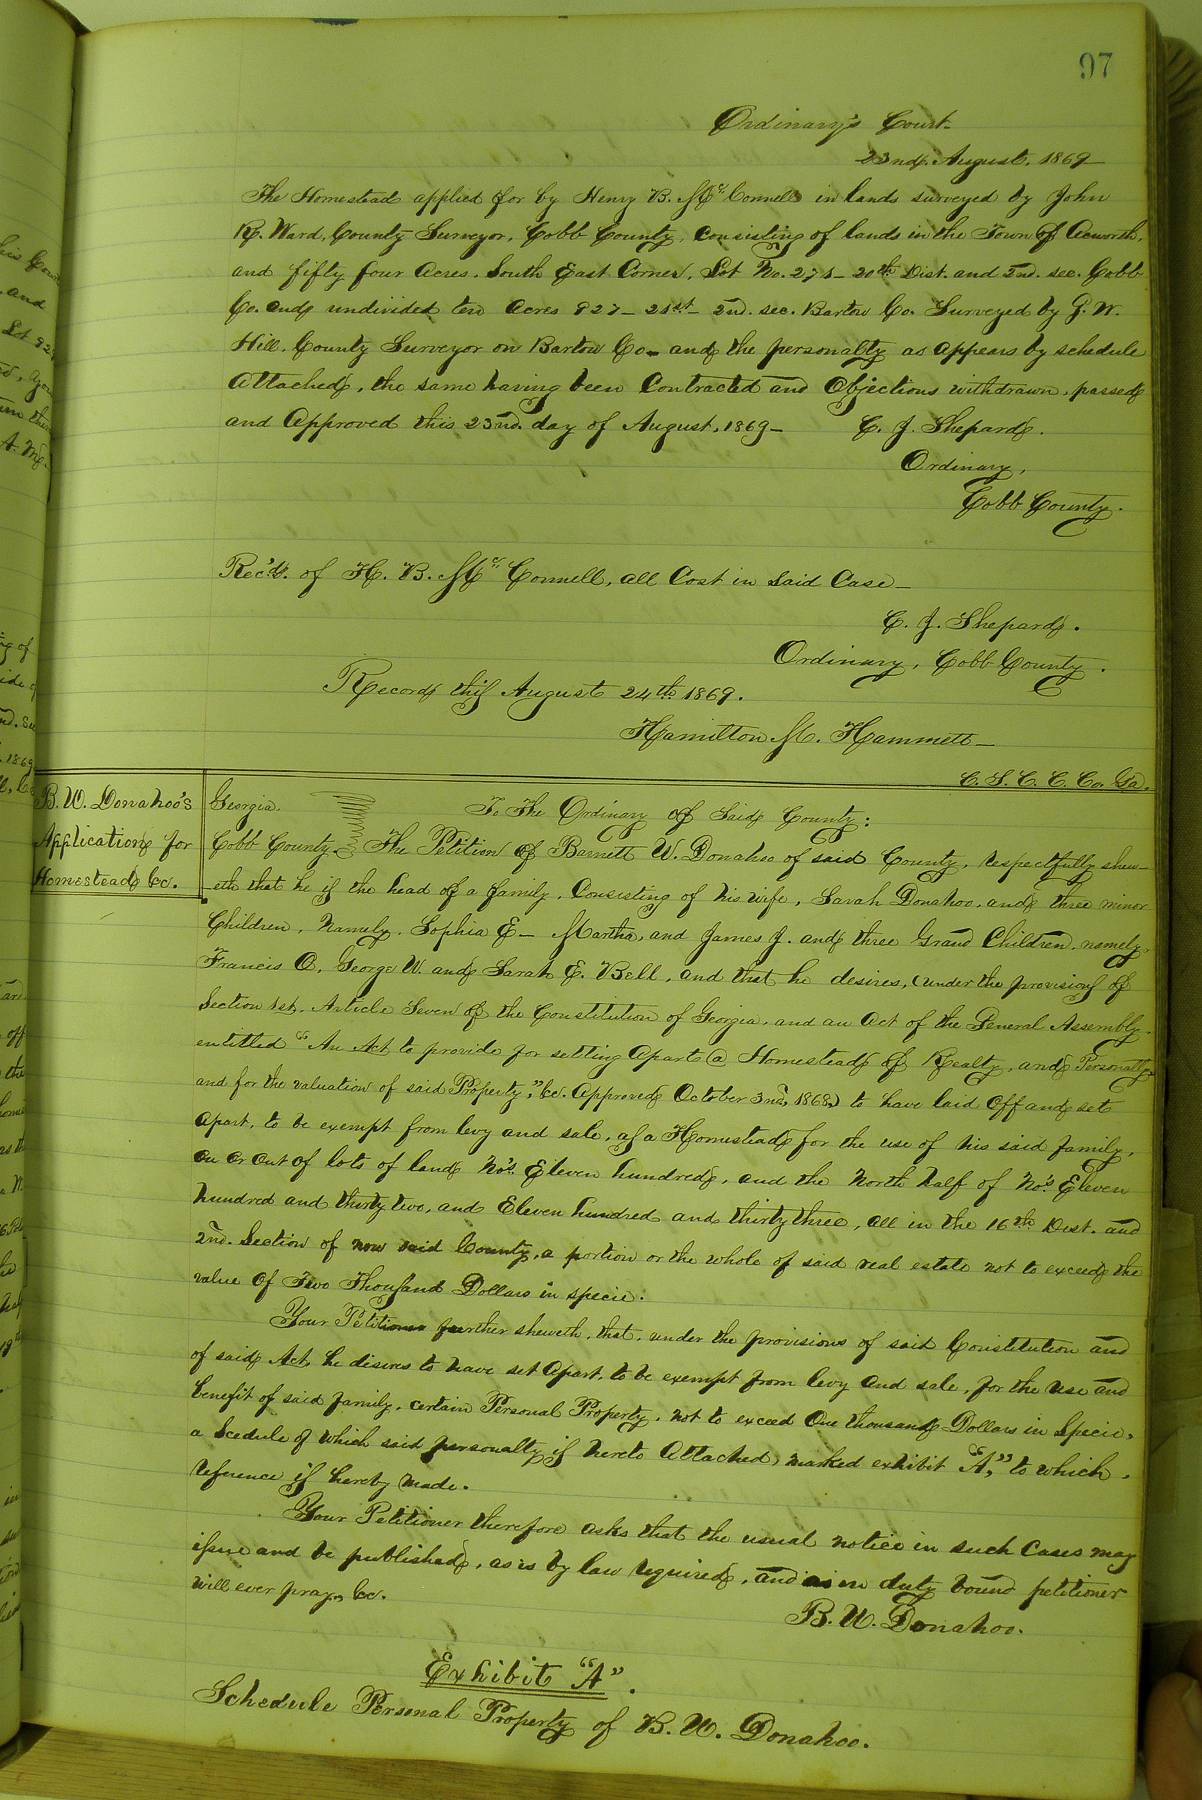 97
Ordinary's Court.
23nd. August. 1869
The Homestead applied for by Henry B. McConnell in lands surveyed by John
R. Ward, County Surveyor, Cobb County, Consisting of lands in the Town of Acworth,
and fifty four Acres. South East Corner, Lot No. 271 - 20th Dist. and 2nd. sec. Cobb
Co. and undivided ten Acres 927 - 21st - 2nd. sec. Bartow Co. Surveyed by G. W.
Hill. County Surveyor on Bartow Co. and the personalty as appears by schedule
Attached, the same having been Contracted and Objections withdrawn, passed
and Approved this 23nd. day of August, 1869 - C. J. Shepard.
Ordinary,
Cobb County.
Rec'd. of H. B. McConnell, all Cost in Said Case -
C. J. Shepard.
Ordinary, Cobb County.
Record this August 24th 1869.
Hamilton M. Hammett -
C. S. C. C. Co. Ga.
B. W. Donahoo's
Application for
Homestead &c.
Georgia. To The Ordinary of Said County:
Cobb County. The Petition of Barnett W. Donahoo of said County, respectfully shew-
-eth that he is the head of a family, Consisting of his wife, Sarah Donahoo, and three minor
Children, Namely, Sophia E - Martha, and James J. and three Grand Children, namely,
Francis O, George W. and Sarah E. Bell, and that he desires, (under the provisions of
Section 1st, Article Seven of the Constitution of Georgia, and an Act of the General Assembly,
entitled "An Act to provide for setting Apart a Homestead of Realty, and Personalty
and for the valuation of said Property," &c. Approved October 3nd, 1868,) to have laid off and set
Apart, to be exempt from levy and sale, as a Homestead for the use of his said family,
on or out of lots of land No's. Eleven hundred, and the North half of No's. Eleven
hundred and thirty two, and Eleven hundred and thirty three, all in the 16th Dist. and
2nd. Section of now said County, a portion or the whole of said real estate not to exceed the
value of Two Thousand Dollars in specie.
Your Petitioner further sheweth, that, under the provisions of said Constitution and
of said Act, he disires to have set Apart, to be exempt from levy and sale, for the use and
benefit of said family, certain Personal Property, not to exceed One thousand Dollars in Specie,
a Scedule of which said personalty is hereto Attached, marked exhibit "A," to which
reference is hereby made.
Your Petitioner therefore asks that the usual notice in such Cases may
issue and be published, as is by law required, and as in duty bound petitioner
will ever pray, &c.
B. W. Donahoo.
Exhibit "A".
Schedule Personal Property of B. W. Donahoo.